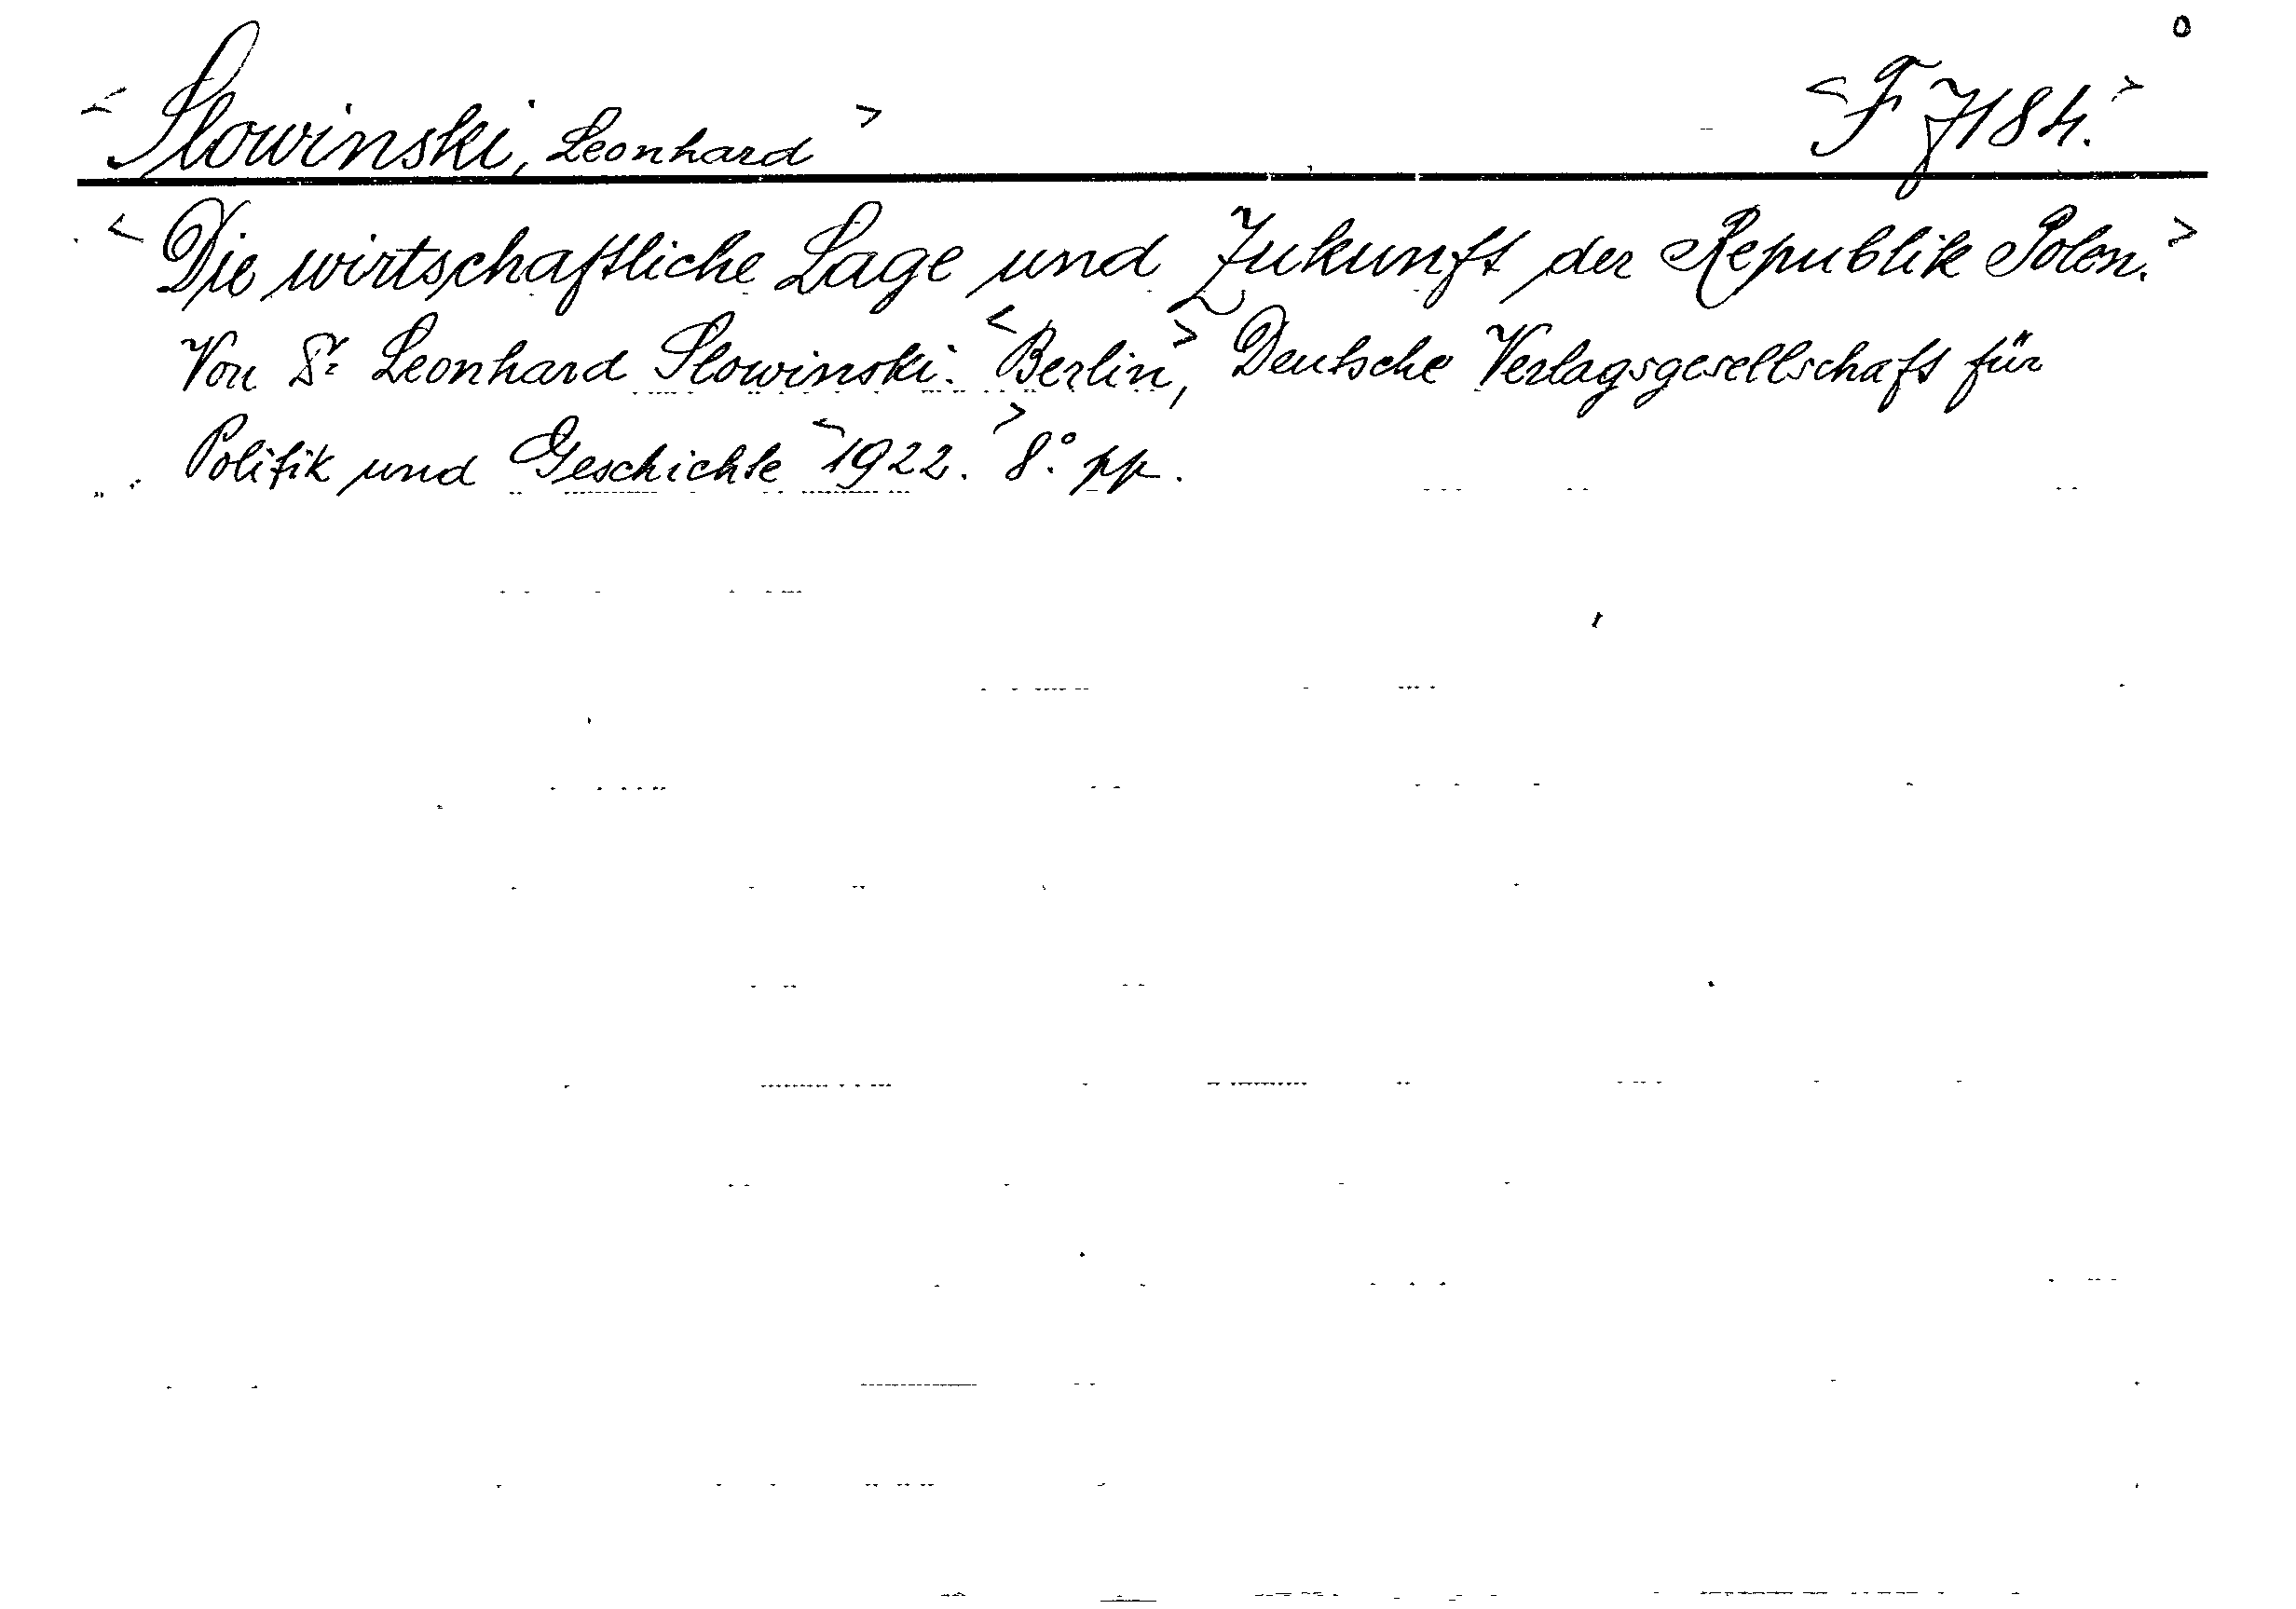 o
< Slowinski, Leonhard > < F 7184. >
< Die wirtschaftliche Lage und Zukunft der Republik Polen. >
Von Dr Leonhard Slowinski. < Berlin >, Deutsche Verlagsgesellschaft für
Politik und Geschichte < 1922. > 8.° pp.